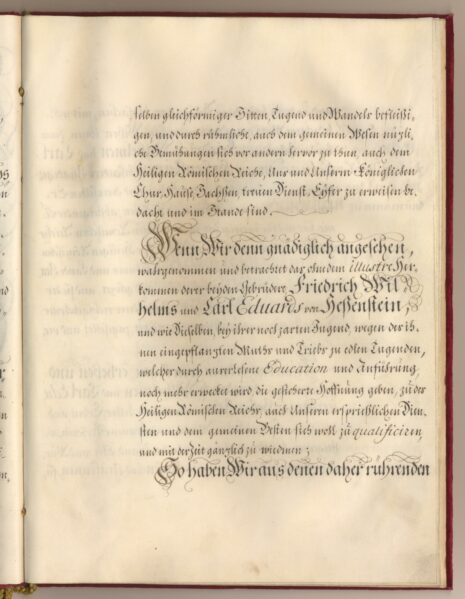 selben gleichförmiger Sitten, Tugend und Wandels befleißi-
gen, und durch rühmliche, auch dem gemeinen Wesen nüzli-
che Bemühungen sich vor andern hervor zu thun, auch dem
Heiligen Römischen Reiche, Uns und Unserm Königlichen
Chur-Hause Sachßen treuen Dienst-Eyfer zu erweisen be-
dacht und im Stande sind.
Wenn Wir denn gnädiglich angesehen,
wahrgenommen und betrachtet das ohndem illustre Her-
kommen derer beyden Gebrüdere Friedrich Wil-
helms und Carl Eduards von Heßenstein,
und wie Dieselben, bey ihrer noch zarten Jugend, wegen der ih-
nen eingepflanzten Muths und Triebs zu edlen Tugenden,
welcher durch auserlesene Education und Anführung,
noch mehr erwecket wird, die gesicherte Hoffnung geben, zu des
Heiligen Römischen Reichs, auch Unsern ersprießlichen Dien-
sten und dem gemeinen Besten sich wohl zu qualificiren,
und mit der Zeit gänzlich zu wiedmen;
So haben Wir aus denen daher rührenden